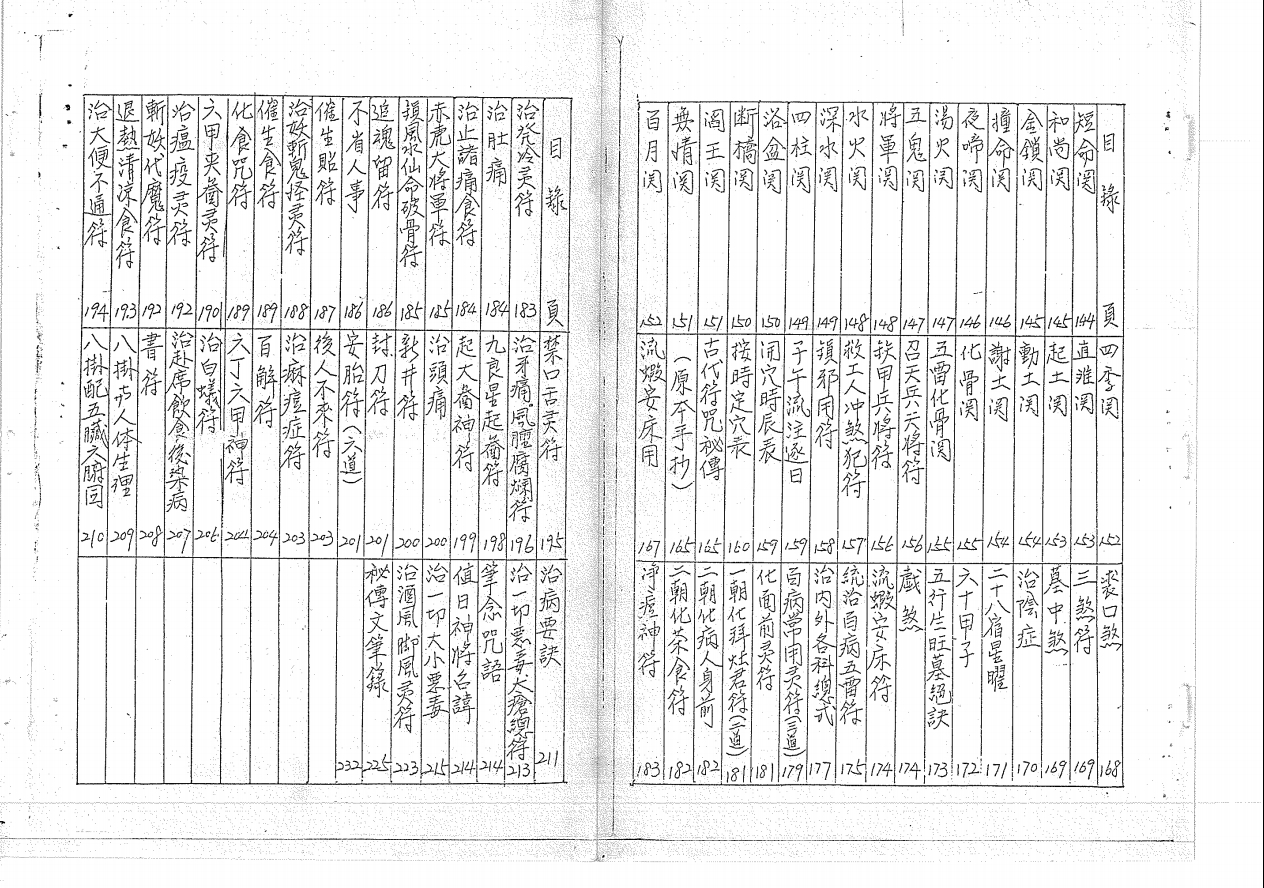 目錄 頁
短命関 144
和尚関 145
金鎖関 145
撞命関 146
夜啼関 146
湯火関 147
五鬼関 147
將軍関 148
水火関 148
深水関 149
四柱関 149
浴盆関 150
断橋関 150
閻王関 151
無情関 151
百月関 152
四季関 152
直难関 153
起土関 153
動土関 154
謝土関 154
化骨関 155
五雷化骨関 155
召天兵天將符 156
鉄甲兵將符 156
救工人冲煞犯符 157
鎮邪用符 158
子午流注逐日 159
開穴時辰表 159
按時定穴表 160
古代符咒祕傳 165
(原本手抄) 165
流蝦安床用 167
喪口煞 168
三煞符 169
墓中煞 169
治陰症 170
二十八宿星曜 171
六十甲子 172
五行生旺墓絕訣 173
戲煞 174
流蝦安床符 174
統治百病五雷符 175
治内外各科總式 177
百病常用灵符(三道) 179
化面前灵符 181
一朝化拜灶君符(二道) 181
二朝化病人身前 182
三朝化茶食符 182
淨神符 183
目錄 頁
治發冷灵符 183
治肚痛 184
治止諸痛食符 184
赤虎大將軍符 185
鎮風水仙命破骨符 185
追魂留符 186
不省人事 186
催生貼符 187
治妖斬鬼怪灵符 188
催生食符 189
化食咒符 189
六甲夾喬灵符 190
治瘟疫灵符 192
斬妖代魔符 192
退熱清涼食符 193
治大便不通符 194
禁口舌灵符 195
治牙痛。風腫腐爛符 196
九良星起喬符 198
起大喬神符 199
治頭痛 200
新井符 200
封刀符 201
安胎符(六道) 201
後人不來符 203
治麻痘症符 203
百解符 204
六丁六甲神符 204
治白蟻符 206
治赴席飲食後染病 207
書符 208
八掛与人体生理 209
八掛配五臟六腑図 210
治病要訣 211
治一切悪毒大瘡總符 213
筆念咒語 214
值日神將名諱 214
治一切大小悪毒 215
治酒風脚風灵符 223
祕傳文筆錄 225
232